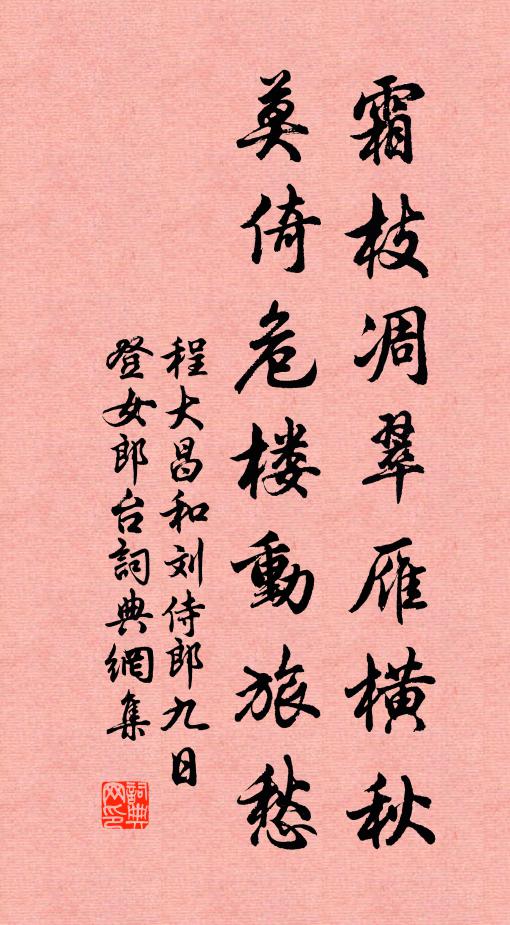 霜枝凋翠雁横秋
莫倚危楼動旅愁
程大昌和刘侍郎九日
登女郎台詞典網集
詞典
网印